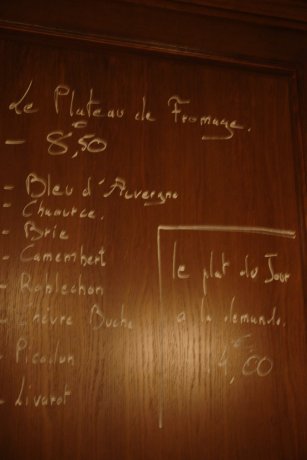 Le Plateau de Fromage.
- 8,50 €
- Bleu d'Auvergne
- Chaource.
- Brie
- Camembert
- Reblochon
- Chèvre Buche
- Picodon
- Livarot
le plat du Jour
a la demande.
€
,00